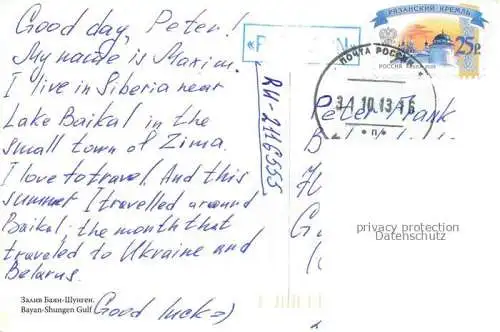 Good day, Peter!
My name is Maxim.
I live in Siberia near
Lake Baikal in the
small town of Zima.
I love to travel. And this
summer I travelled around
Baikal, the month that
traveled to Ukraine and
Belarus.
Good luck =)
Залив Баян-Шунген.
Bayan-Shungen Gulf
RU-2116555
РЯЗАНСКИЙ КРЕМЛЬ
25р
РОССИЯ
ПОЧТА РОССИИ
10.13
«П»
Peter
privacy protection
Datenschutz